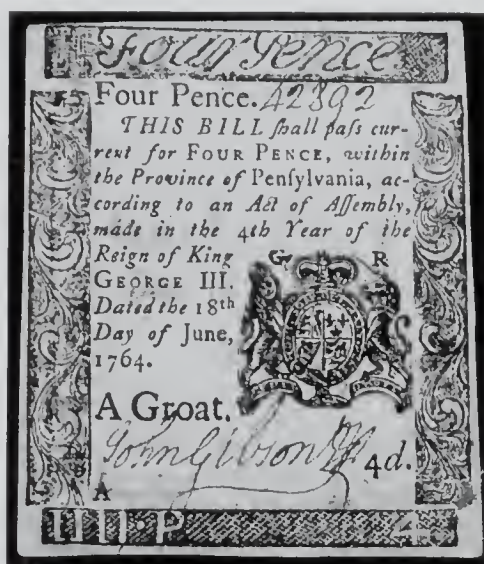 Four Pence
Four Pence. 42392
THIS BILL ſhall paſs cur-
rent for FOUR PENCE, within
the Province of Penſylvania, ac-
cording to an Act of Aſſembly,
made in the 4th Year of the
Reign of King
G R
GEORGE III.
Dated the 18th
Day of June,
1764.
A Groat.
John Gibson
4d.
A
IIII·P